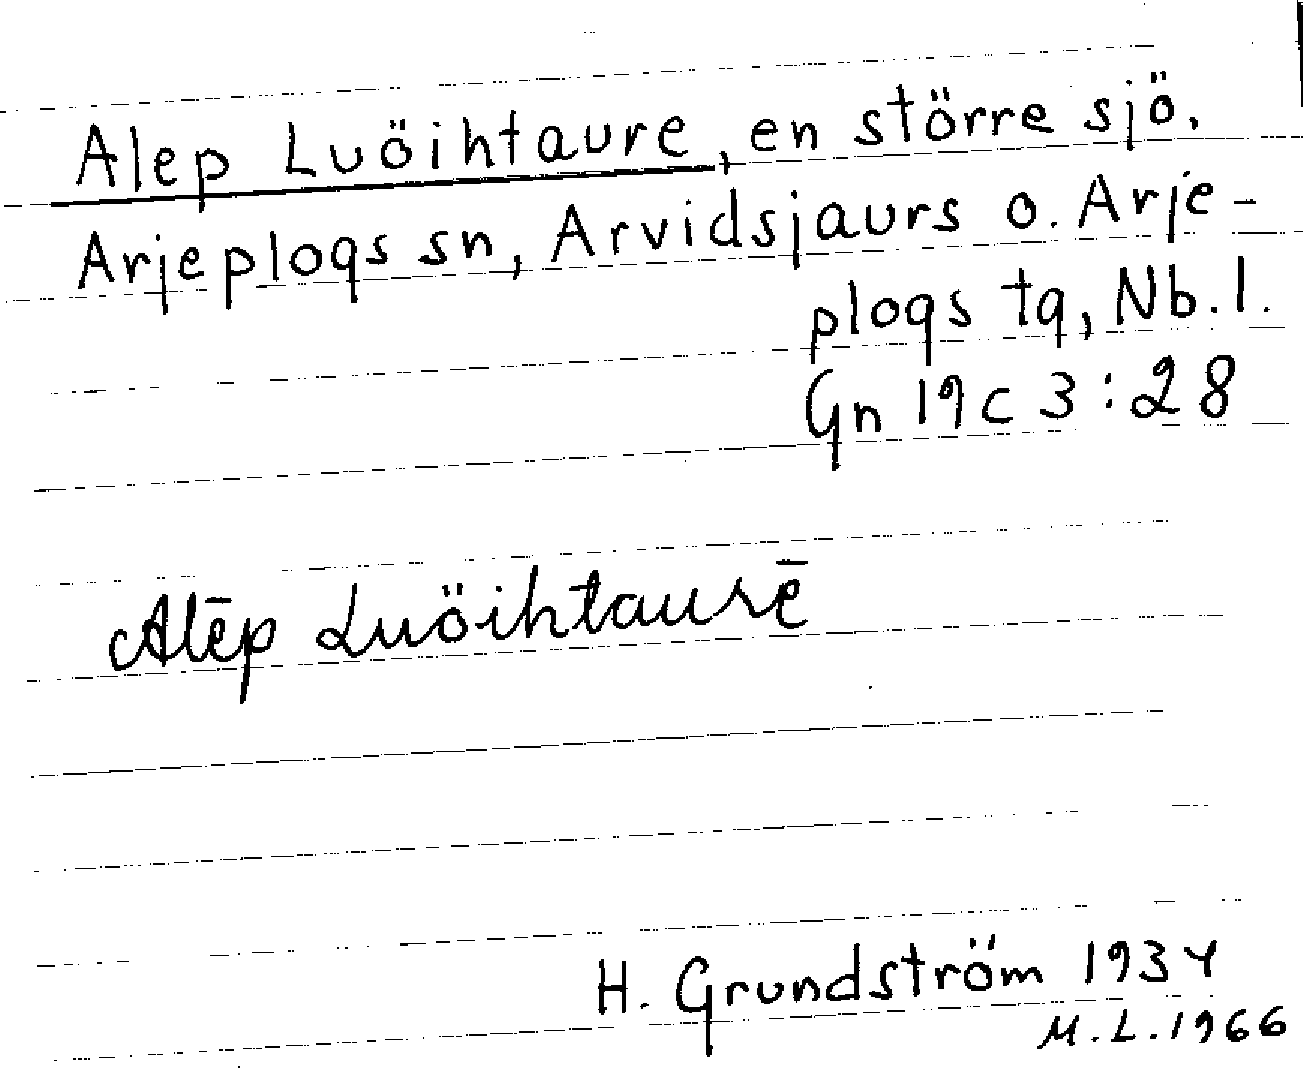 Alep Luöihtaure, en större sjö.
Arjeplogs sn, Arvidsjaurs o. Arje-
plogs tg, Nb. l.
Gn 19c 3:28
Alēp Luöihtaurē
H. Grundström 1934
M.L. 1966